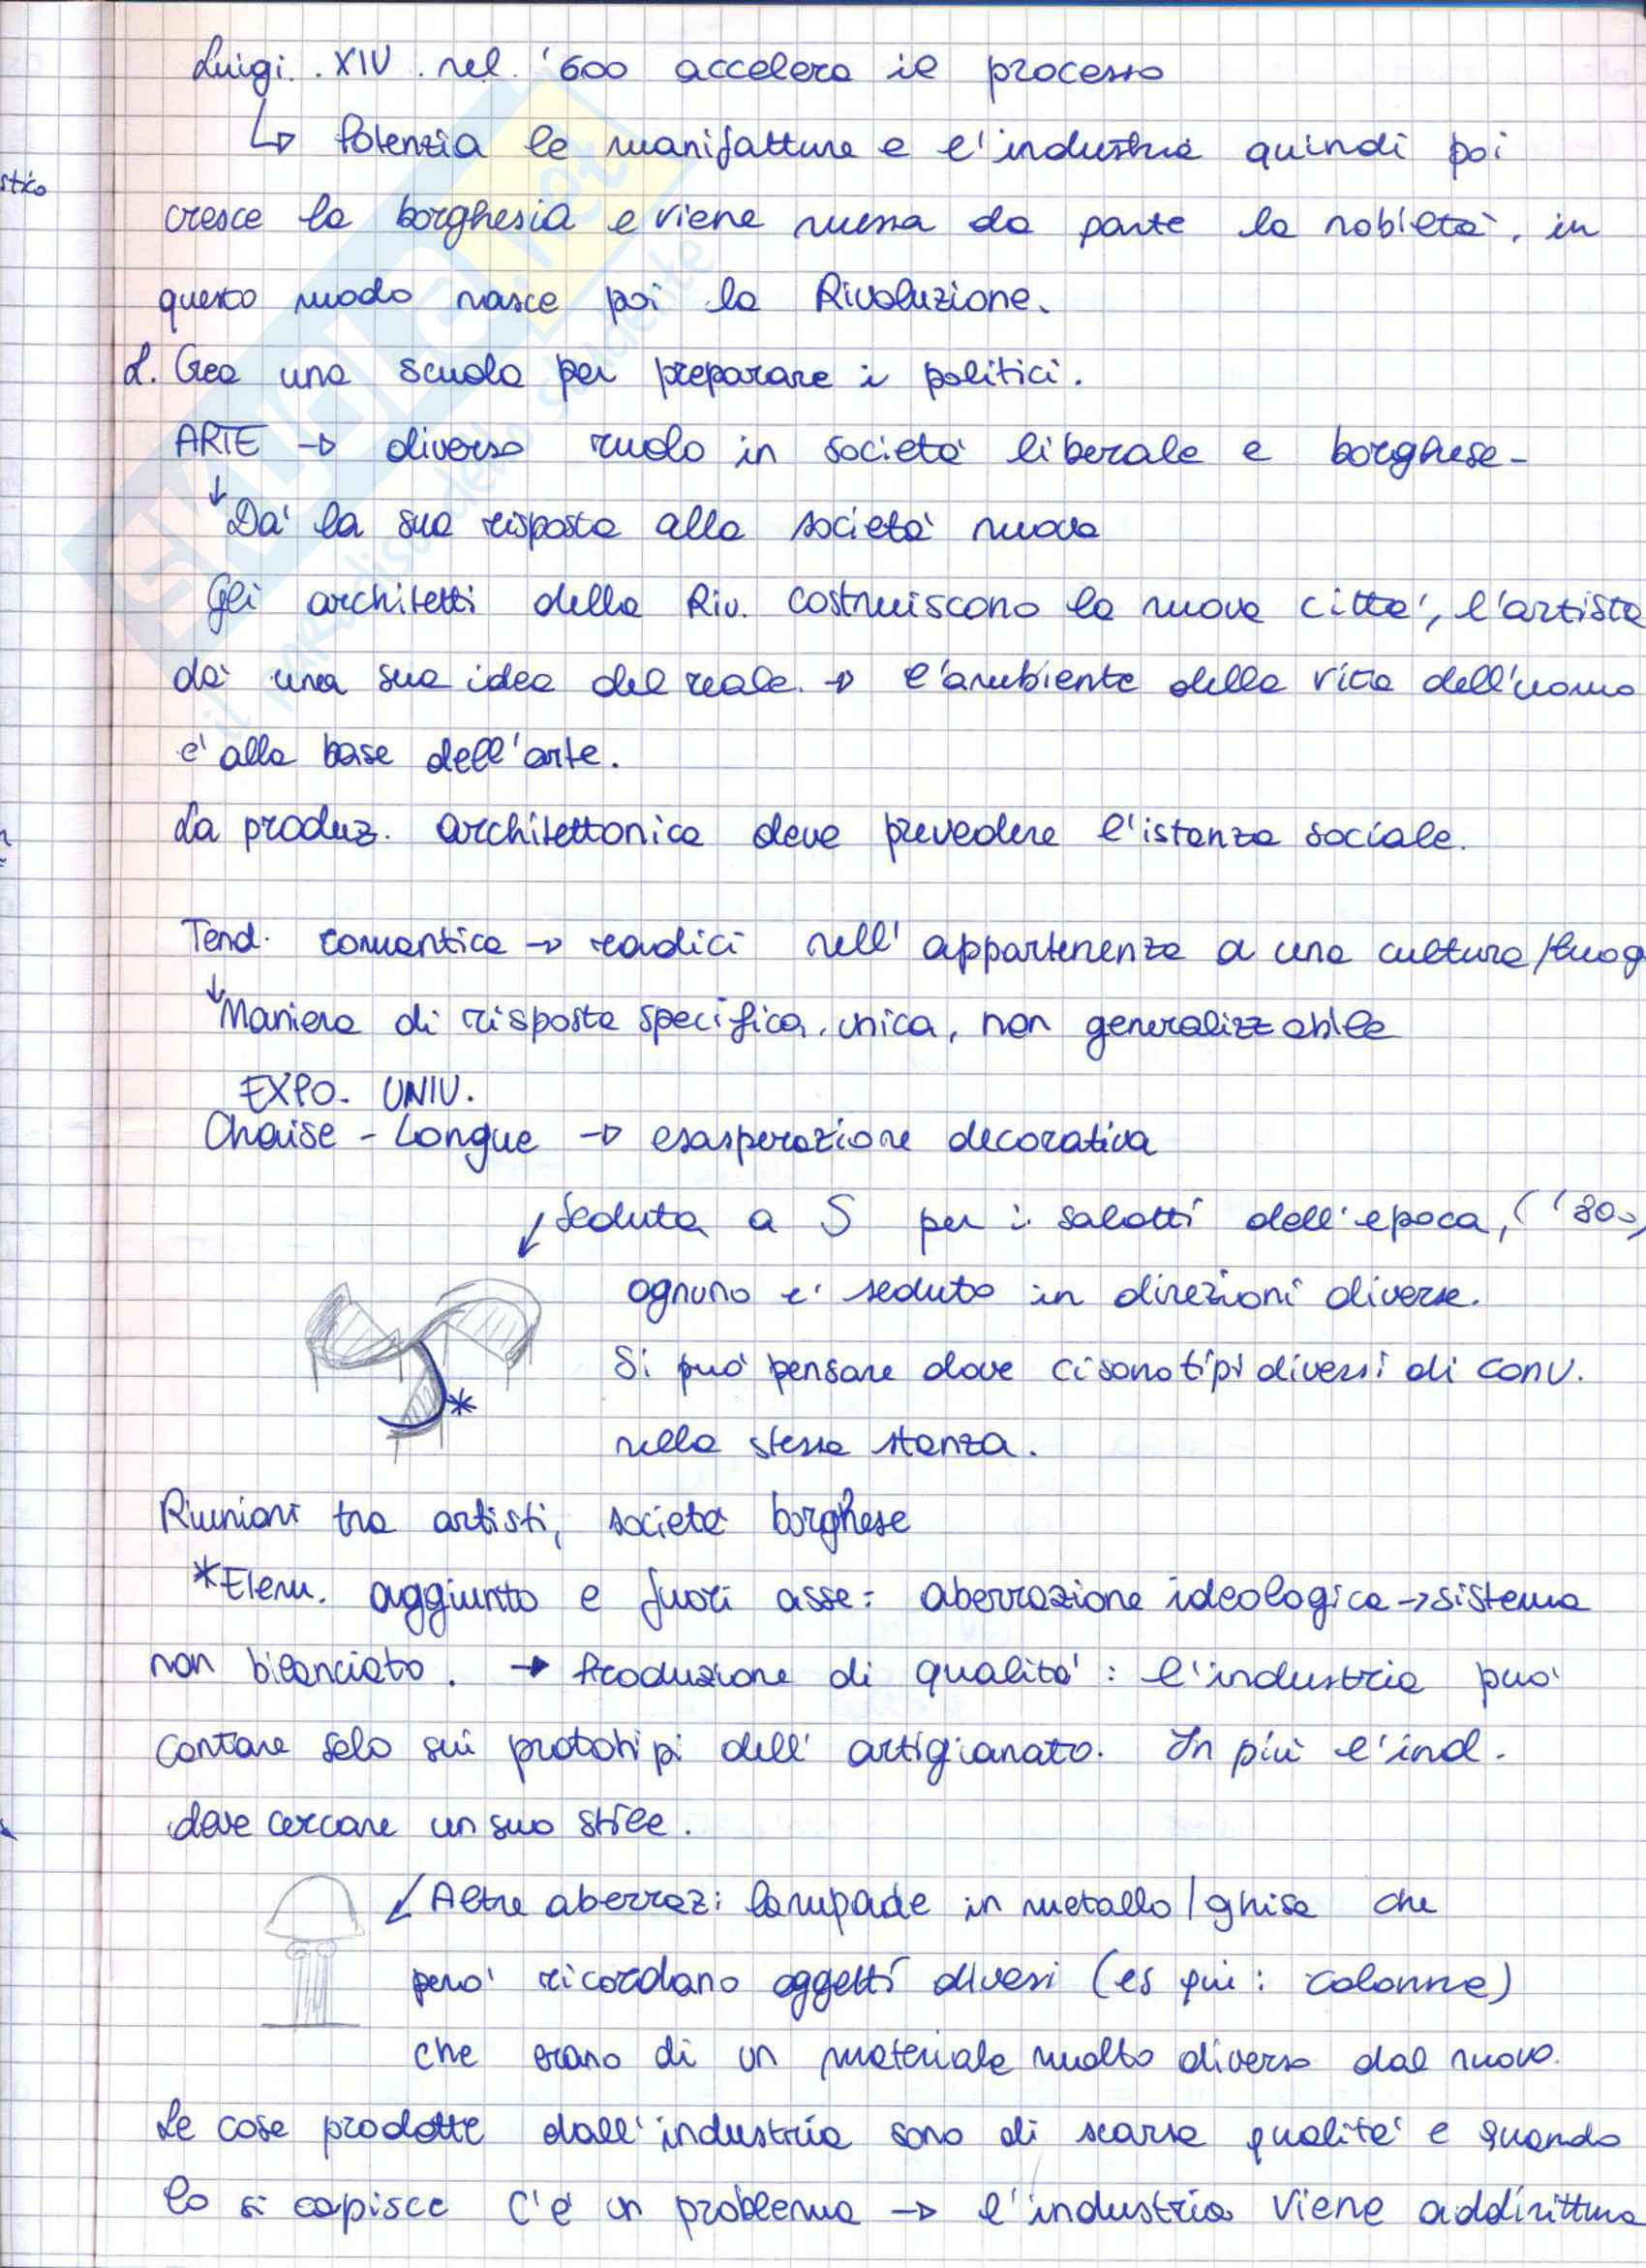 Luigi XIV nel '600 accelera il processo
↳ Potenzia le manifatture e l'industria quindi poi
stico
cresce la borghesia e viene messa da parte la nobiltà, in
questo modo nasce poi la Rivoluzione.
L. Crea una scuola per preparare i politici.
ARTE → diverso ruolo in società liberale e borghese-
↓ Da' la sua risposta alla società nuova
Gli architetti della Riv. costruiscono la nuova citta', l'artista
da' una sua idea del reale. → l'ambiente della vita dell'uomo
e' alla base dell'arte.
La produz. architettonica deve prevedere l'istanza sociale.
Tend. romantica → radici nell'appartenenza a una cultura/luog
↓ Maniera di risposta specifica, unica, non generalizzabile
EXPO. UNIV.
Chaise-Longue → esasperazione decorativa
↙ Seduta a S per i salotti dell'epoca, ('800)
ognuno e' seduto in direzioni diverse.
Si puo' pensare dove ci sono tipi diversi di conv.
* nella stessa stanza.
Riunioni tra artisti, societa' borghese
*Elem. aggiunto e fuori asse: aberrazione ideologica → sistema
non bilanciato. → Produzione di qualita': l'industria puo'
contare solo sui prototipi dell'artigianato. In più l'ind.
deve cercare un suo stile.
↙ Altre aberraz: lampade in metallo/ghisa che
pero' ricordano oggetti diversi (es qui: colonne)
che erano di un materiale molto diverso dal nuovo.
Le cose prodotte dall'industria sono di scarsa qualita' e quando
lo si capisce c'e' un problema → l'industria viene addirittura
SKUOLA.net
il paradiso dello studente